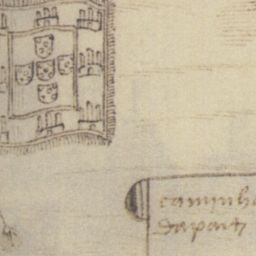 caminho
da part